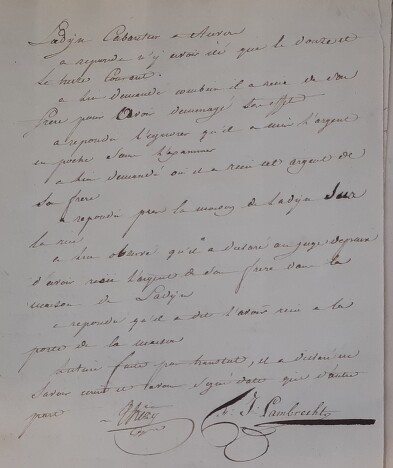 Ladÿn Cabaretier a Anvers
a repondu n'y avoir été que le douze et
le treize Courant.
a lui demandé combien il a recu de son
frere pour avoir demenagé ses effets
a repondu l'ignorer qu'il a mis l'argent
en poche sans l'examiner
a lui demandé ou il a recu cet argent de
son frere
a repondu pres la maison de Ladÿn sur
la rue
a lui observé qu'il a declaré au juge de paix
d'avoir recu l'argent de son frere dans la
maison de Ladÿn
a repondu qu'il a dit l'avoir recu a la
porte de la maison
Lecture faite par translat, il a declaré ne
savoir ecrire et avons signé date que d'autre
part
J. Lambrechts